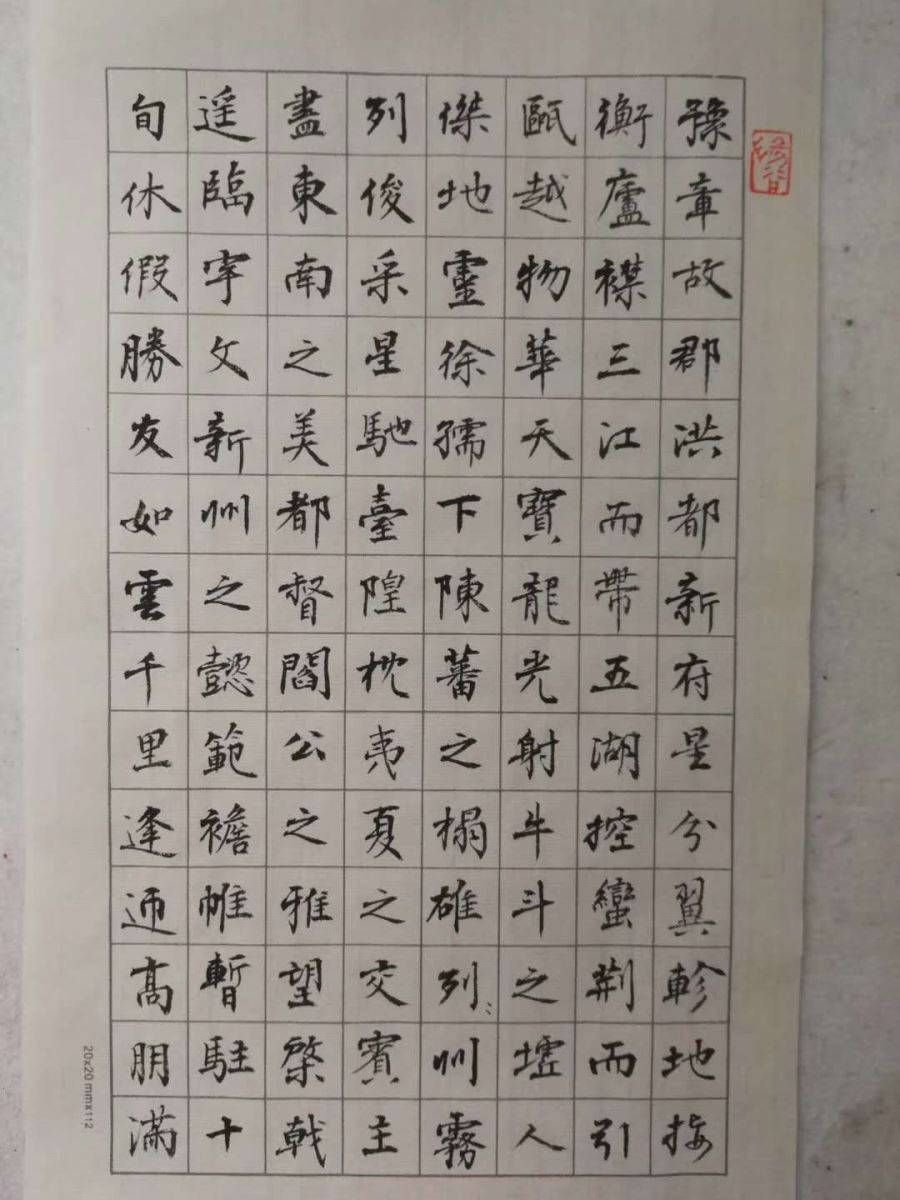 豫章故郡洪都新府星分翼軫地接
衡廬襟三江而帶五湖控蠻荆而引
甌越物華天寶龍光射牛斗之墟人
傑地靈徐孺下陳蕃之榻雄列州霧
列俊采星馳臺隍枕夷夏之交賓主
盡東南之美都督閻公之雅望棨戟
遥臨宇文新州之懿範襜帷暫駐十
旬休假勝友如雲千里逢迎高朋滿
20x20 mmx112